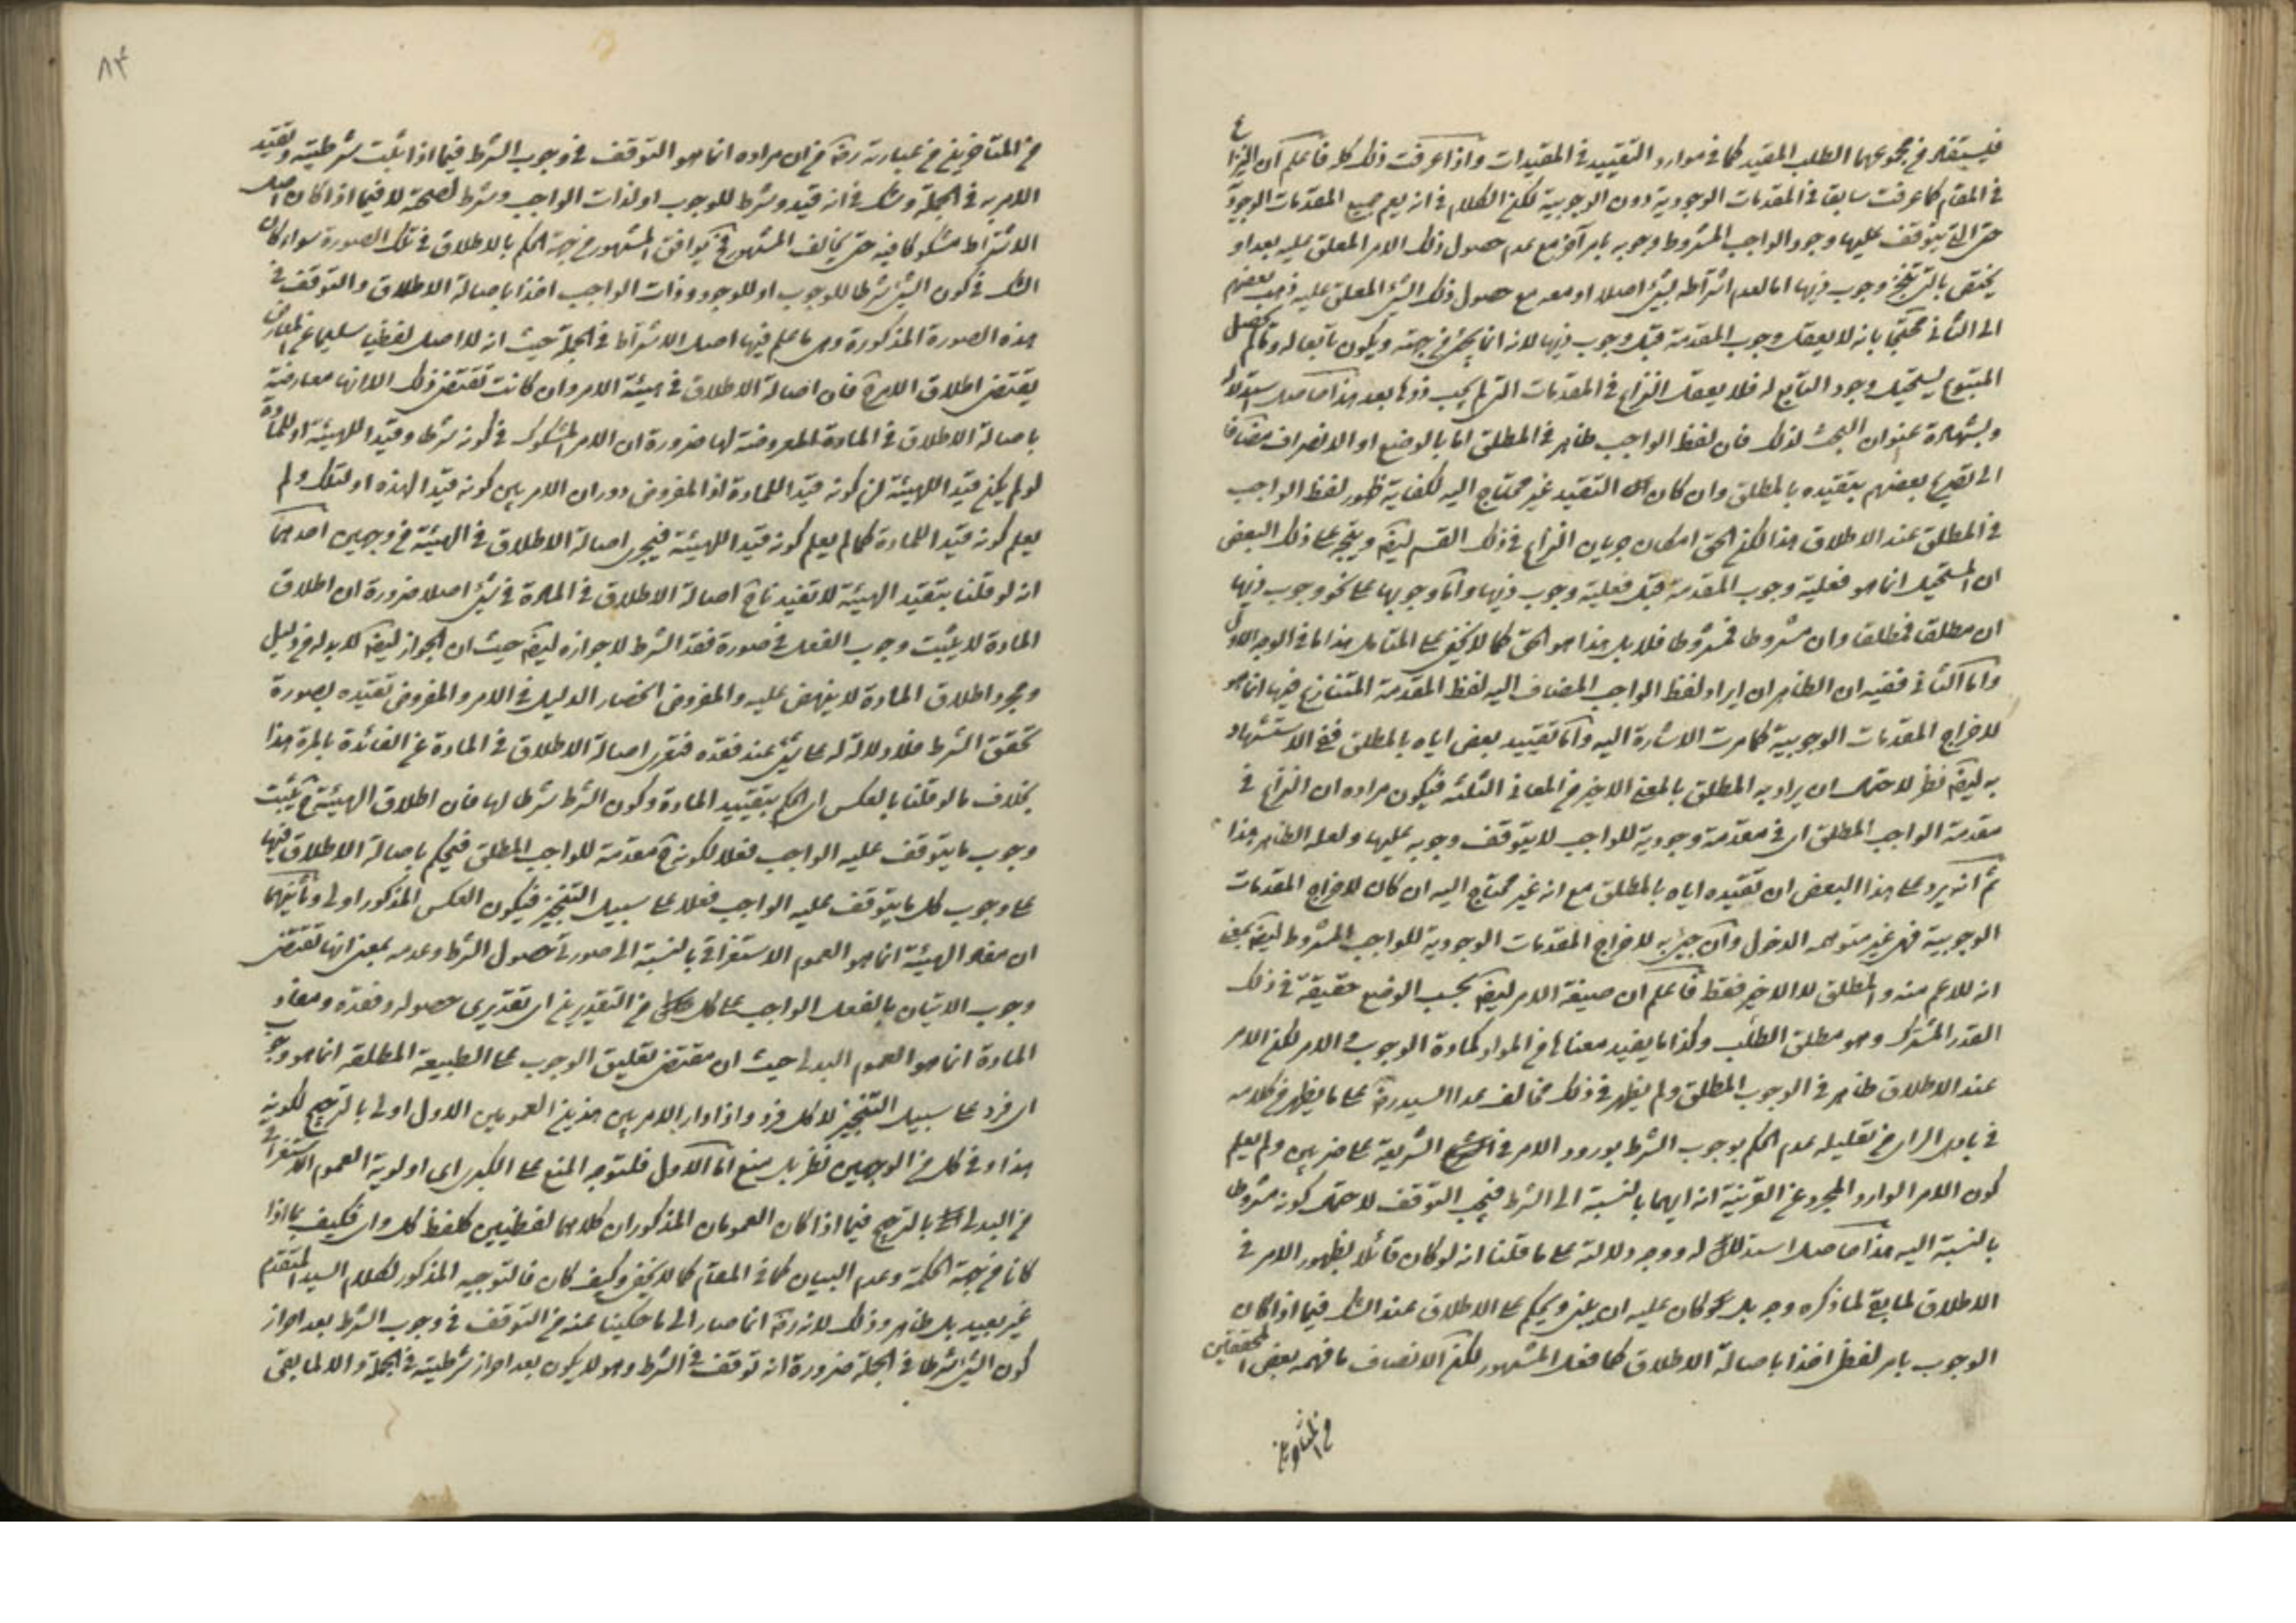 فيستفاد من مجموعهما الطلب المقيد كما في موارد التقييد في المقيدات واذا عرفت ذلك كله فاعلم ان النزاع
في المقام كما عرفت سابقا في المقدمات الوجودية دون الوجوبية لكن الكلام في انه يعم جميع المقدمات الوجودية
حتى التي يتوقف عليها وجود الواجب المشروط وجوبه بامر آخر مع عدم حصول ذلك الامر المعلق عليه بعد او
يختص بالتي تنجز وجوب ذيها اما لعدم اشتراطه بشئ اصلا او معه مع حصول ذلك الشئ المعلق عليه ذهب بعضهم
الى الثاني محتجا بانه لا يعقل وجوب المقدمة قبل وجوب ذيها لانه انما يجئ من جهته ويكون تابعا له وما لم يحصل
المتبوع يستحيل وجود التابع له فلا يعقل النزاع في المقدمات التي لم يجب ذوها بعد هذا حاصل استدلاله
وبشهادة عنوان البحث لذلك فان لفظ الواجب ظاهر في المطلق اما بالوضع او الانصراف مضافا
الى تصريح بعضهم بتقييده بالمطلق وان كان التقييد غير محتاج اليه لكفاية ظهور لفظ الواجب
في المطلق عند الاطلاق هذا لكن الحق امكان جريان النزاع في ذلك القسم ايضا ويتجه على ذلك البعض
ان المستحيل انما هو فعلية وجوب المقدمة قبل فعلية وجوب ذيها واما وجوبها على نحو وجوب ذيها
ان مطلقا فمطلقا وان مشروطا فمشروطا فلا بل هذا هو الحق كما لا يخفى على المتامل هذا ما في الوجه الاول
واما الثاني ففيه ان الظاهر ان ايراد لفظ الواجب المضاف اليه لفظ المقدمة المتنازع فيها انما هو
لاخراج المقدمات الوجوبية كما مرت الاشارة اليه واما تقييد بعض اياه بالمطلق ففي الاستشهاد
به ايضا نظر لاحتمال ان يراد به المطلق بالمعنى الاخير من المعاني الثلثة فيكون مراده ان النزاع في
مقدمة الواجب المطلق اى في مقدمة وجودية للواجب لا يتوقف وجوبه عليها ولعله الظاهر هذا
ثم انه يرد على هذا البعض ان تقييده اياه بالمطلق مع انه غير محتاج اليه ان كان لاخراج المقدمات
الوجوبية فهي غير متوهمه الدخول وان جئ به لاخراج المقدمات الوجودية للواجب المشروط ايضا بمعنى
انه للاعم منه والمطلق لا الاخير فقط فاعلم ان صيغة الامر ايضا بحسب الوضع حقيقة في ذلك
القدر المشترك وهو مطلق الطلب وكذا ما يفيد معناها من المواد كمادة الوجوب والامر لكن الامر
عند الاطلاق ظاهر في الوجوب المطلق ولم يظهر في ذلك مخالف عدا السيد ره على ما يظهر من كلامه
في بادى الراى من تعليله عدم الحكم بوجوب الشرط بورود الامر في الشريعة على ضربين ولم يعلم
كون الامر الوارد المجرد عن القرينة انه ايهما بالنسبة الى الشرط فيجب التوقف لاحتمال كونه مشروطا
بالنسبة اليه هذا حاصل استدلاله ووجه دلالته على ما قلنا انه لو كان قائلا بظهور الامر في
الاطلاق لما بقى لما ذكره وجه بل كان عليه ان يبنى ويحكم على الاطلاق عند الشك فيما اذا كان
الوجوب بامر لفظى اخذا باصالة الاطلاق كما فعل المشهور لكن الانصاف ما فهمه بعض المحققين
من المتاخرين
٨٤
من المتاخرين من عبارته ره من ان مراده انما هو التوقف في وجوب الشرط فيما اذا ثبت شرطيته وتقييد
الامر به في الجملة وشك في انه قيد وشرط للوجوب او لذات الواجب وشرط لصحته لا فيما اذا كان اصل
الاشتراط مشكوكا فيه حتى يخالف المشهور فح يوافق المشهور من جهة الحكم بالاطلاق في تلك الصورة سواء كان
الشك في كون الشئ شرطا للوجوب او للوجود وذات الواجب اخذا باصالة الاطلاق والتوقف في
هذه الصورة المذكورة وهى ما علم فيها اصل الاشتراط في الجملة حيث انه لا اصل لفظيا سليما عن المعارض
يقتضى اطلاق الامر ح فان اصالة الاطلاق في هيئة الامر وان كانت تقتضى ذلك الا انها معارضة
باصالة الاطلاق في المادة المعروضة لها ضرورة ان الامر المشكوك في كونه شرطا وقيدا للهيئة او للمادة
لو لم يكن قيدا للهيئة لزم كونه قيدا للمادة اذ المفروض دوران الامر بين كونه قيدا لهذه او لتلك ولم
يعلم كونه قيدا للمادة كما لم يعلم كونه قيدا للهيئة فيجرى اصالة الاطلاق في الهيئة من وجهين احدهما
انه لو قلنا بتقييد الهيئة لا تفيد ح اصالة الاطلاق في المادة في شئ اصلا ضرورة ان اطلاق
المادة لا يثبت وجوب الفعل في صورة فقد الشرط لا جوازه ايضا حيث ان الجواز ايضا لا بد له من دليل
ومجرد اطلاق المادة لا ينهض عليه والمفروض انحصار الدليل في الامر والمفروض تقييده بصورة
تحقق الشرط فلا دلالة له على شئ عند فقده فتعرى اصالة الاطلاق في المادة عن الفائدة بالمرة هذا
بخلاف ما لو قلنا بالعكس اى الحكم بتقييد المادة وكون الشرط شرطا لها فان اطلاق الهيئة ح يثبت
وجوب ما يتوقف عليه الواجب فعلا لكونه ح مقدمة للواجب المطلق فيحكم باصالة الاطلاق فيها
على وجوب كل ما يتوقف عليه الواجب فعلا على سبيل التنجيز فيكون العكس المذكور اولى وثانيهما
ان مفاد الهيئة انما هو العموم الاستغراقى بالنسبة الى صورتى حصول الشرط وعدمه بمعنى انها تقتضى
وجوب الاتيان بالفعل الواجب على كل من التقديرين اى تقديرى حصوله وفقده ومفاد
المادة انما هو العموم البدلى حيث ان مقتضى تعليق الوجوب على الطبيعة المطلقة انما هو وجوب
اى فرد على سبيل التخيير لا كل فرد واذا دار الامر بين هذين العمومين الاول اولى بالترجيح لكونه
هذا وفي كل من الوجهين نظر بل منع اما الاول فلتوجه المنع على الكبرى اى اولوية العموم الاستغراقى
من البدلى بالترجيح فيما اذا كان العمومان المذكوران كلاهما لفظيين كلفظ كل واى فكيف بما اذا
كانا من جهة الحكمة وعدم البيان كما في المقام كما لا يخفى وكيف كان فالتوجيه المذكور لكلام السيد المتقدم
غير بعيد بل ظاهر وذلك لانه ره انما صار الى ما حكينا عنه من التوقف في وجوب الشرط بعد احراز
كون الشئ شرطا في الجملة ضرورة انه توقف في الشرط وهو لا يكون بعد احراز شرطيته في الجملة والا لما بقى